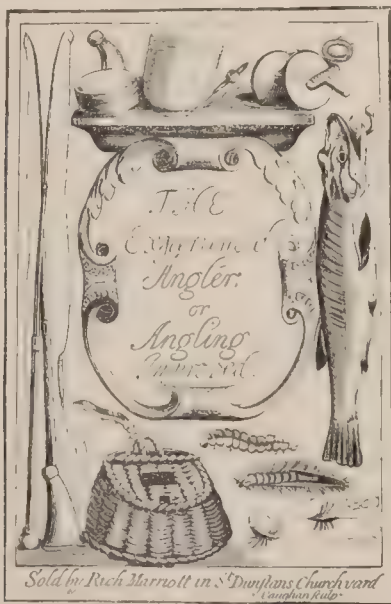 THE
Experienc'd
Angler:
or
Angling
Improved.
Sold by Rich Marriott in St. Dunstans Churchyard
Vaughan sculp: